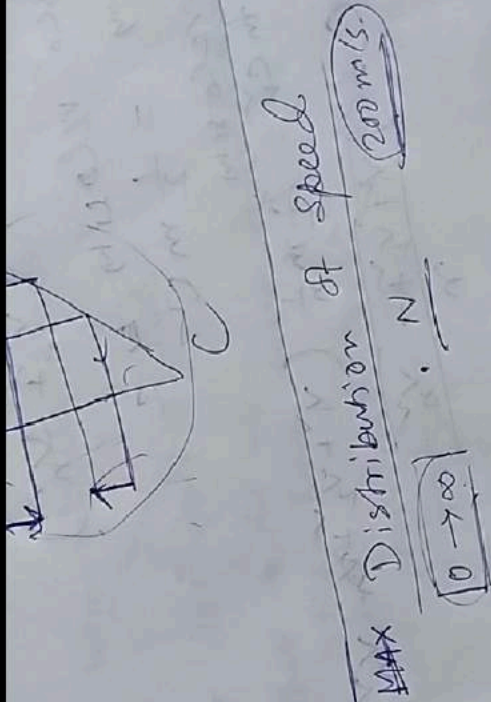 C
MAX Distribution of Speed
0 → ∞
N
200 m/s